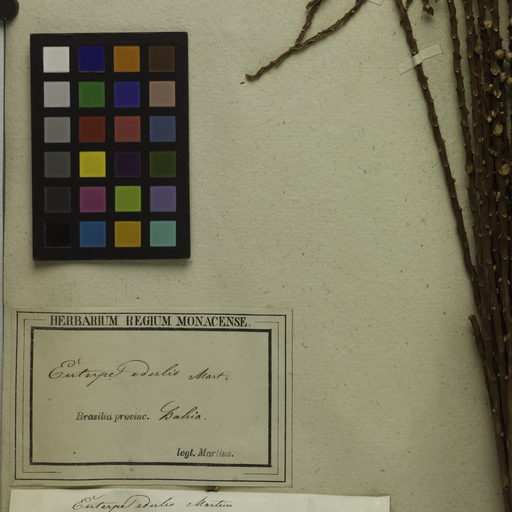 HERBARIUM REGIUM MONACENSE.
Euterpe edulis Mart.
Brasilia provinc. Bahia.
legt. Martius.
Euterpe edulis Martius